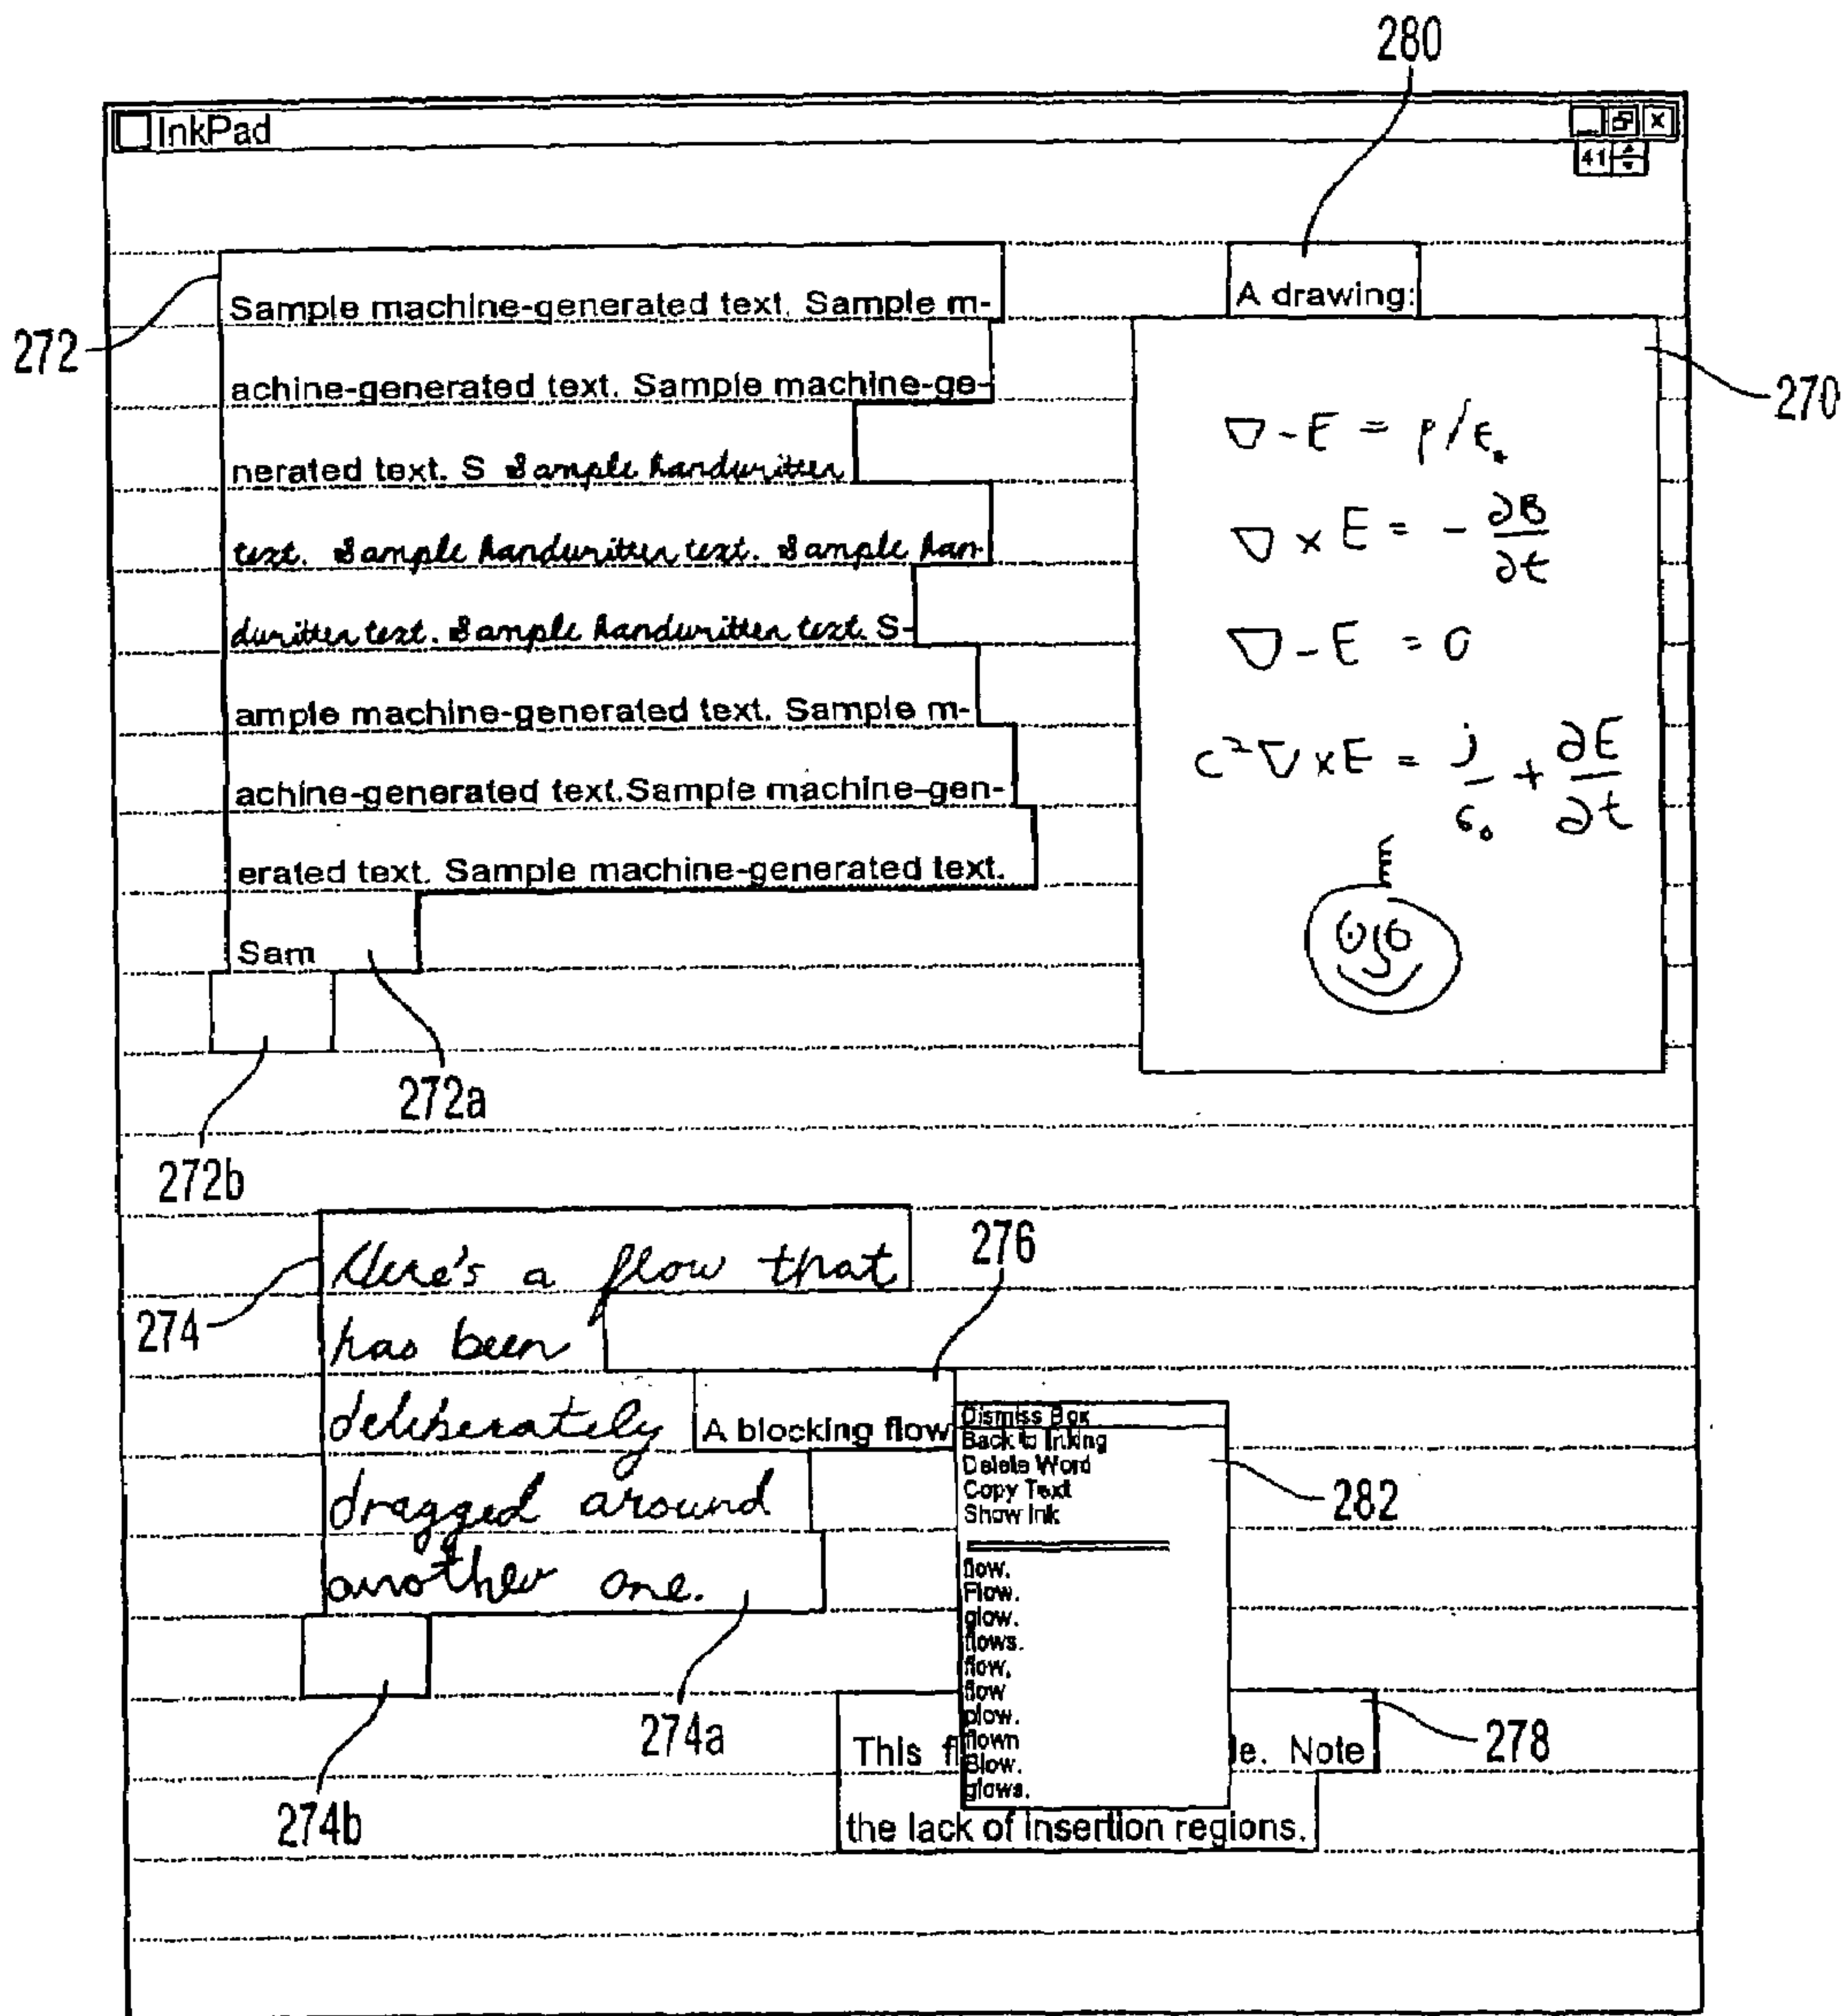 280
InkPad
41
272
Sample machine-generated text. Sample m-
achine-generated text. Sample machine-ge-
nerated text. S Sample handwritten
text. Sample handwritten text. Sample han-
dwritten text. Sample handwritten text. S-
ample machine-generated text. Sample m-
achine-generated text.Sample machine-gen-
erated text. Sample machine-generated text.
Sam
272a
272b
A drawing:
270
∇-E = ρ/ε₀
∇×E = -∂B/∂t
∇-E = 0
c²∇×E = j/ε₀ + ∂E/∂t
274
Here's a flow that
has been
deliberately
dragged around
another one.
274a
274b
276
A blocking flow
Dismiss Box
Back to Inking
Delete Word
Copy Text
Show Ink
flow.
Flow.
glow.
flows.
flow,
flow
plow.
flown
Blow.
glows.
282
This fl e. Note
the lack of insertion regions.
278